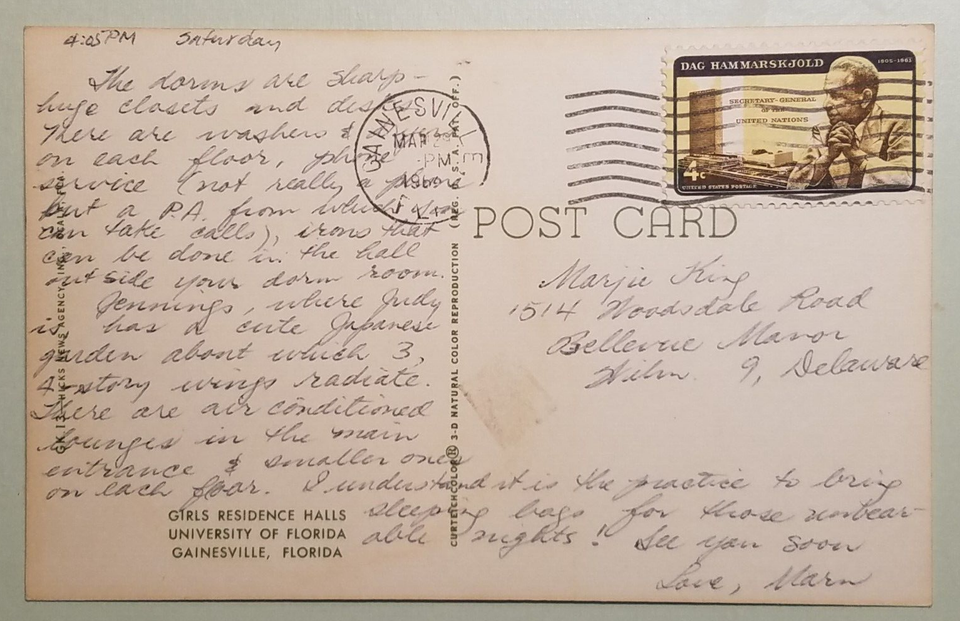 4:05 PM Saturday
The dorms are sharp-
huge closets and desks
There are washers &
on each floor, phone
service (not really a phone
but a P.A. from which you
can take calls), irons that
can be done in the hall
outside your dorm room.
Jennings, where Judy
is has a cute Japanese
garden about which 3,
4-story wings radiate.
There are air conditioned
lounges in the main
entrance & smaller ones
on each floor. I understand it is the practice to bring
sleeping bags for those unbear-
able nights! See you soon
Love,
GIRLS RESIDENCE HALLS
UNIVERSITY OF FLORIDA
GAINESVILLE, FLORIDA
HICKS NEWS AGENCY, INC.
CURTEICHCOLOR® 3-D NATURAL COLOR REPRODUCTION (REG. U.S.A. PAT. OFF.)
GAINESVILLE
MAR
PM
FLA.
DAG HAMMARSKJOLD 1905-1961
SECRETARY-GENERAL
OF THE
UNITED NATIONS
4c
UNITED STATES POSTAGE
POST CARD
Marjie King
1514 Woodsdale Road
Bellevue Manor
Wilm 9, Delaware